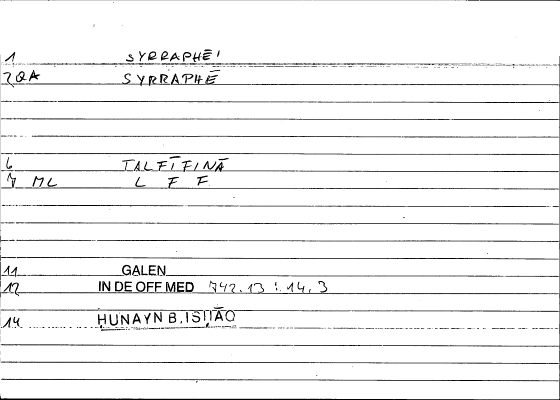 1 SYRRAPHĒ!
2 QA SYRRAPHĒ
6 TALFĪFINĀ
7 ML L F F
11 GALEN
12 IN DE OFF MED 742.13 : 14.3
14 ḤUNAYN B. ISḤĀQ